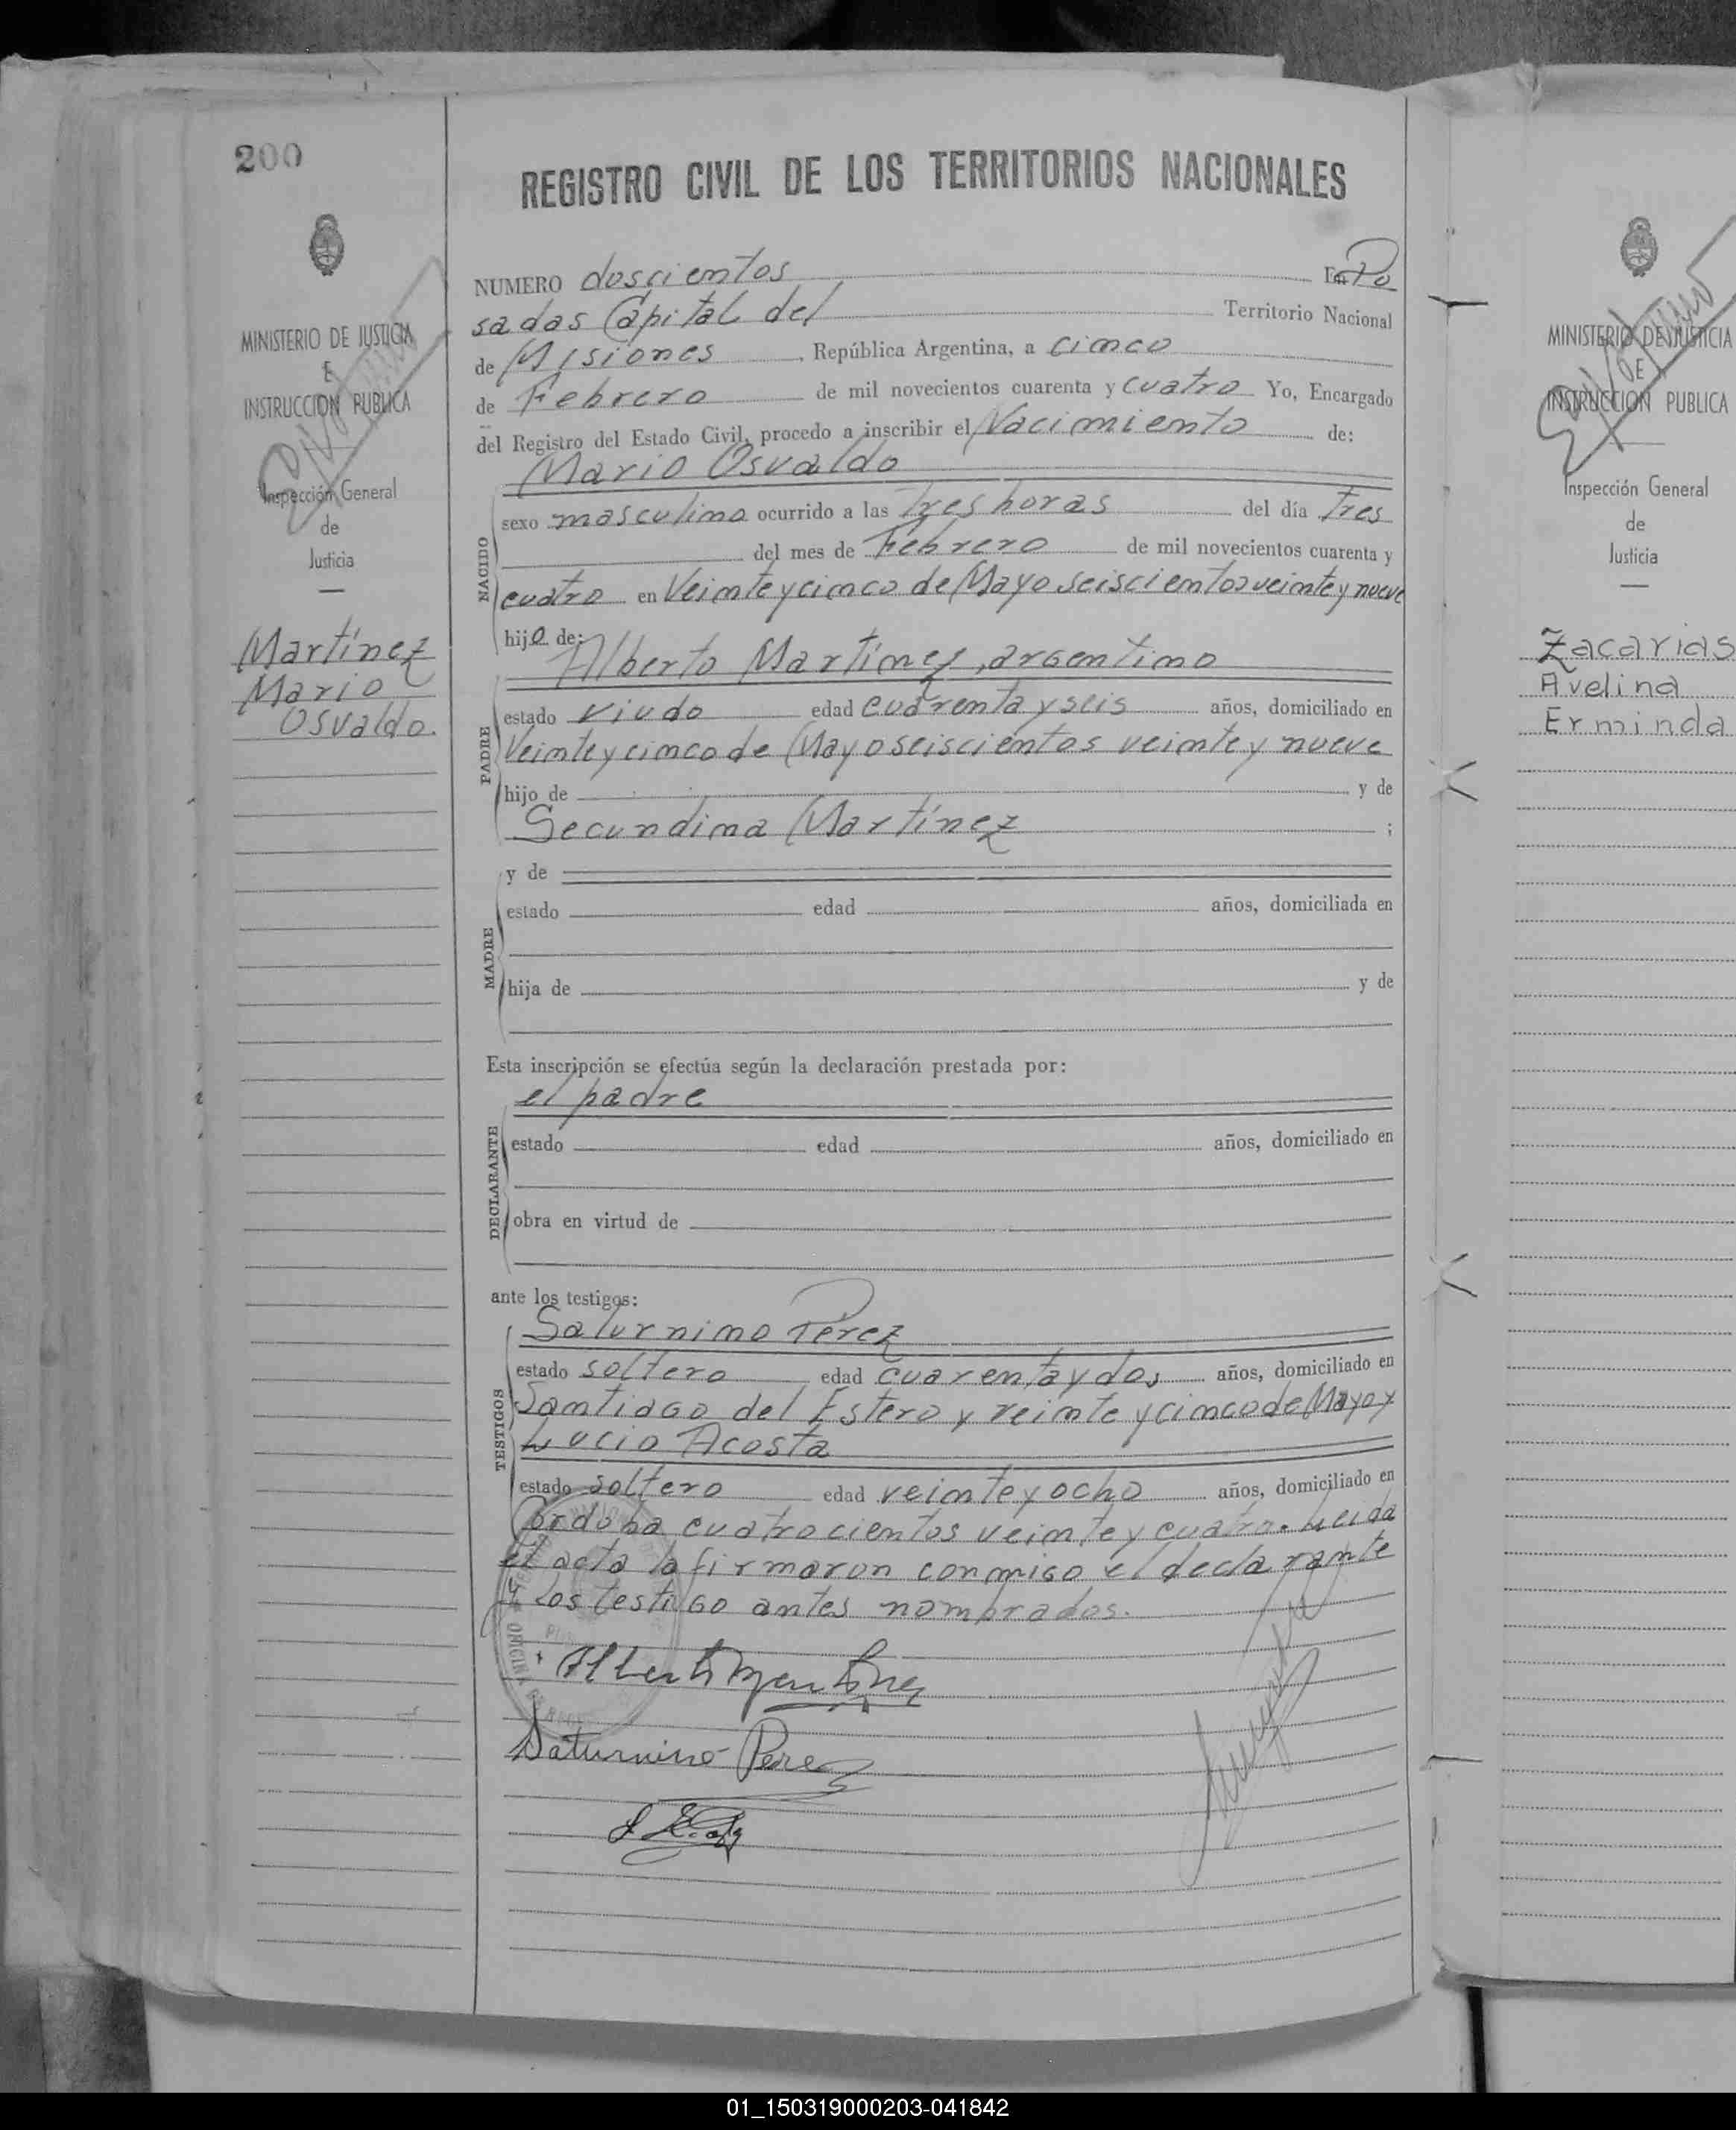 200
REGISTRO CIVIL DE LOS TERRITORIOS NACIONALES
MINISTERIO DE JUSTICIA
E
INSTRUCCION PUBLICA
Inspección General
de
Justicia
Martínez
Mario
Osvaldo.
NUMERO doscientos En Po
sadas Capital del Territorio Nacional
de Misiones, República Argentina, a cinco
de Febrero de mil novecientos cuarenta y cuatro Yo, Encargado
del Registro del Estado Civil, procedo a inscribir el Nacimiento de:
Mario Osvaldo
NACIDO
sexo masculino ocurrido a las tres horas del día tres
del mes de Febrero de mil novecientos cuarenta y
cuatro en Veinte y cinco de Mayo seiscientos veinte y nueve
hijo de:
Alberto Martínez, argentino
PADRE
estado viudo edad cuarenta y seis años, domiciliado en
Veinte y cinco de Mayo seiscientos veinte y nueve
hijo de y de
Secundina Martínez ;
y de
MADRE
estado edad años, domiciliada en
hija de y de
Esta inscripción se efectúa según la declaración prestada por:
el padre
DECLARANTE
estado edad años, domiciliado en
obra en virtud de
ante los testigos:
Saturnino Pérez
TESTIGOS
estado soltero edad cuarenta y dos años, domiciliado en
Santiago del Estero y veinte y cinco de Mayo y
Lucio Acosta
estado soltero edad veinte y ocho años, domiciliado en
Córdoba cuatrocientos veinte y cuatro. Leida
el acta la firmaron conmigo el declarante
y los testigo antes nombrados.
Alberto Martínez
Saturnino Perez
MINISTERIO DE JUSTICIA
E
INSTRUCCION PUBLICA
Inspección General
de
Justicia
Zacarias
Avelina
Erminda
01_150319000203-041842